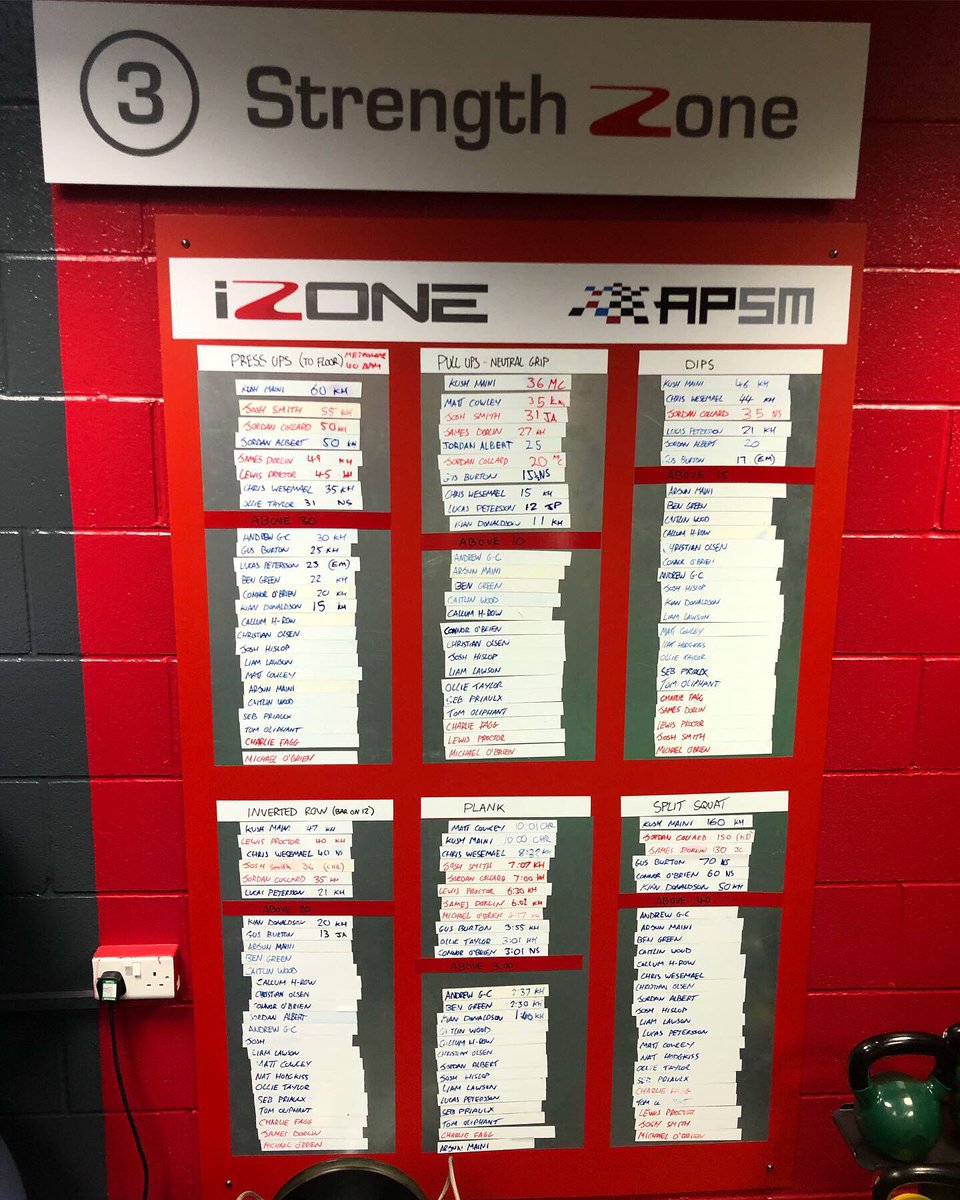 3 Strength Zone
iZONE APSM
PRESS UPS (TO FLOOR) METRONOME 40 BPM
KUSH MAINI 60 KH
JOSH SMITH 55 KH
JORDAN COLLARD 50 KH
JORDAN ALBERT 50 KH
JAMES DORLIN 49 KH
LEWIS PROCTOR 45 KH
CHRIS WESEMAEL 35 KH
OLLIE TAYLOR 31 NS
ABOVE 30
ANDREW G-C 30 KH
GUS BURTON 25 KH
LUCAS PETERSSON 23 (EM)
BEN GREEN 22 KH
CONNOR O'BRIEN 20 KH
KIAN DONALDSON 15 KH
CALLUM H-ROW
CHRISTIAN OLSEN
JOSH HISLOP
LIAM LAWSON
MATT COWLEY
ARJUN MAINI
CAITLIN WOOD
SEB PRIAULX
TOM OLIPHANT
CHARLIE FAGG
MICHAEL O'BRIEN
PULL UPS - NEUTRAL GRIP
KUSH MAINI 36 MC
MATT COWLEY 35 KM
JOSH SMITH 31 JA
JAMES DORLIN 27 KH
JORDAN ALBERT 25
JORDAN COLLARD 20 MC
GUS BURTON 15 NS
CHRIS WESEMAEL 15 KH
LUCAS PETERSSON 12 JP
KIAN DONALDSON 11 KH
ABOVE 10
ANDREW G-C
ARJUN MAINI
BEN GREEN
CAITLIN WOOD
CALLUM H-ROW
CONNOR O'BRIEN
CHRISTIAN OLSEN
JOSH HISLOP
LIAM LAWSON
OLLIE TAYLOR
SEB PRIAULX
TOM OLIPHANT
CHARLIE FAGG
LEWIS PROCTOR
MICHAEL O'BRIEN
DIPS
KUSH MAINI 46 KH
CHRIS WESEMAEL 44 KH
JORDAN COLLARD 35 NS
LUCAS PETERSSON 21 KH
JORDAN ALBERT 20
GUS BURTON 17 (EM)
ABOVE
ARJUN MAINI
BEN GREEN
CAITLIN WOOD
CALLUM H-ROW
CHRISTIAN OLSEN
CONNOR O'BRIEN
ANDREW G-C
JOSH HISLOP
KIAN DONALDSON
LIAM LAWSON
MATT COWLEY
NAT HODGKISS
OLLIE TAYLOR
SEB PRIAULX
TOM OLIPHANT
CHARLIE FAGG
JAMES DORLIN
LEWIS PROCTOR
JOSH SMITH
MICHAEL O'BRIEN
INVERTED ROW (BAR ON 12)
KUSH MAINI 47 KH
LEWIS PROCTOR 40 KH
CHRIS WESEMAEL 40 NS
JOSH SMITH 36 (CHR)
JORDAN COLLARD 35 KH
LUCAS PETERSSON 21 KH
ABOVE 20
KIAN DONALDSON 20 KH
GUS BURTON 13 JA
ARJUN MAINI
BEN GREEN
CAITLIN WOOD
CALLUM H-ROW
CHRISTIAN OLSEN
CONNOR O'BRIEN
JORDAN ALBERT
ANDREW G-C
JOSH
LIAM LAWSON
MATT COWLEY
NAT HODGKISS
OLLIE TAYLOR
SEB PRIAULX
TOM OLIPHANT
CHARLIE FAGG
JAMES DORLIN
MICHAEL O'BRIEN
PLANK
MATT COWLEY 10:01 CHR
KUSH MAINI 10:00 CHR
CHRIS WESEMAEL 8:29 KH
JOSH SMITH 7:07 KH
JORDAN COLLARD 7:00 KH
LEWIS PROCTOR 6:30 KH
JAMES DORLIN 6:02 KH
MICHAEL O'BRIEN 4:17 KH
GUS BURTON 3:55 KH
OLLIE TAYLOR 3:01 KH
CONNOR O'BRIEN 3:01 NS
ABOVE 3:00
ANDREW G-C 2:37 KH
BEN GREEN 2:30 KH
KIAN DONALDSON 1:40 KH
CAITLIN WOOD
CALLUM H-ROW
CHRISTIAN OLSEN
JORDAN ALBERT
JOSH HISLOP
LIAM LAWSON
LUCAS PETERSSON
SEB PRIAULX
TOM OLIPHANT
CHARLIE FAGG
ARJUN MAINI
SPLIT SQUAT
KUSH MAINI 160 KH
JORDAN COLLARD 150 (KD)
JAMES DORLIN 130 JC
GUS BURTON 70 NS
CONNOR O'BRIEN 60 NS
KIAN DONALDSON 50 KH
ABOVE 40
ANDREW G-C
ARJUN MAINI
BEN GREEN
CAITLIN WOOD
CALLUM H-ROW
CHRIS WESEMAEL
CHRISTIAN OLSEN
JORDAN ALBERT
JOSH HISLOP
LIAM LAWSON
LUCAS PETERSSON
MATT COWLEY
NAT HODGKISS
OLLIE TAYLOR
SEB PRIAULX
CHARLIE FAGG
TOM
LEWIS PROCTOR
JOSH SMITH
MICHAEL O'BRIEN